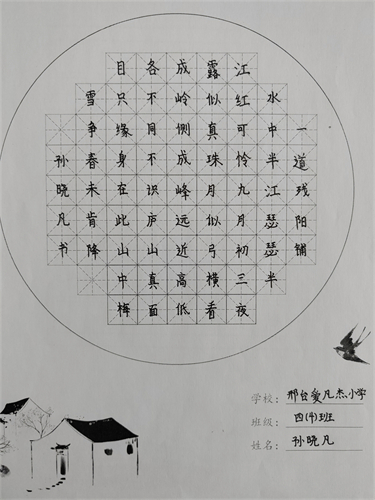 一道残阳铺
水中半江瑟瑟半
江红可怜九月初三夜
露似真珠月似弓横看
成岭侧成峰远近高低
各不同不识庐山真面
目只缘身在此山中梅
雪争春未肯降
孙晓凡书
学校：邢台爱凡杰小学
班级：四(4)班
姓名：孙晓凡